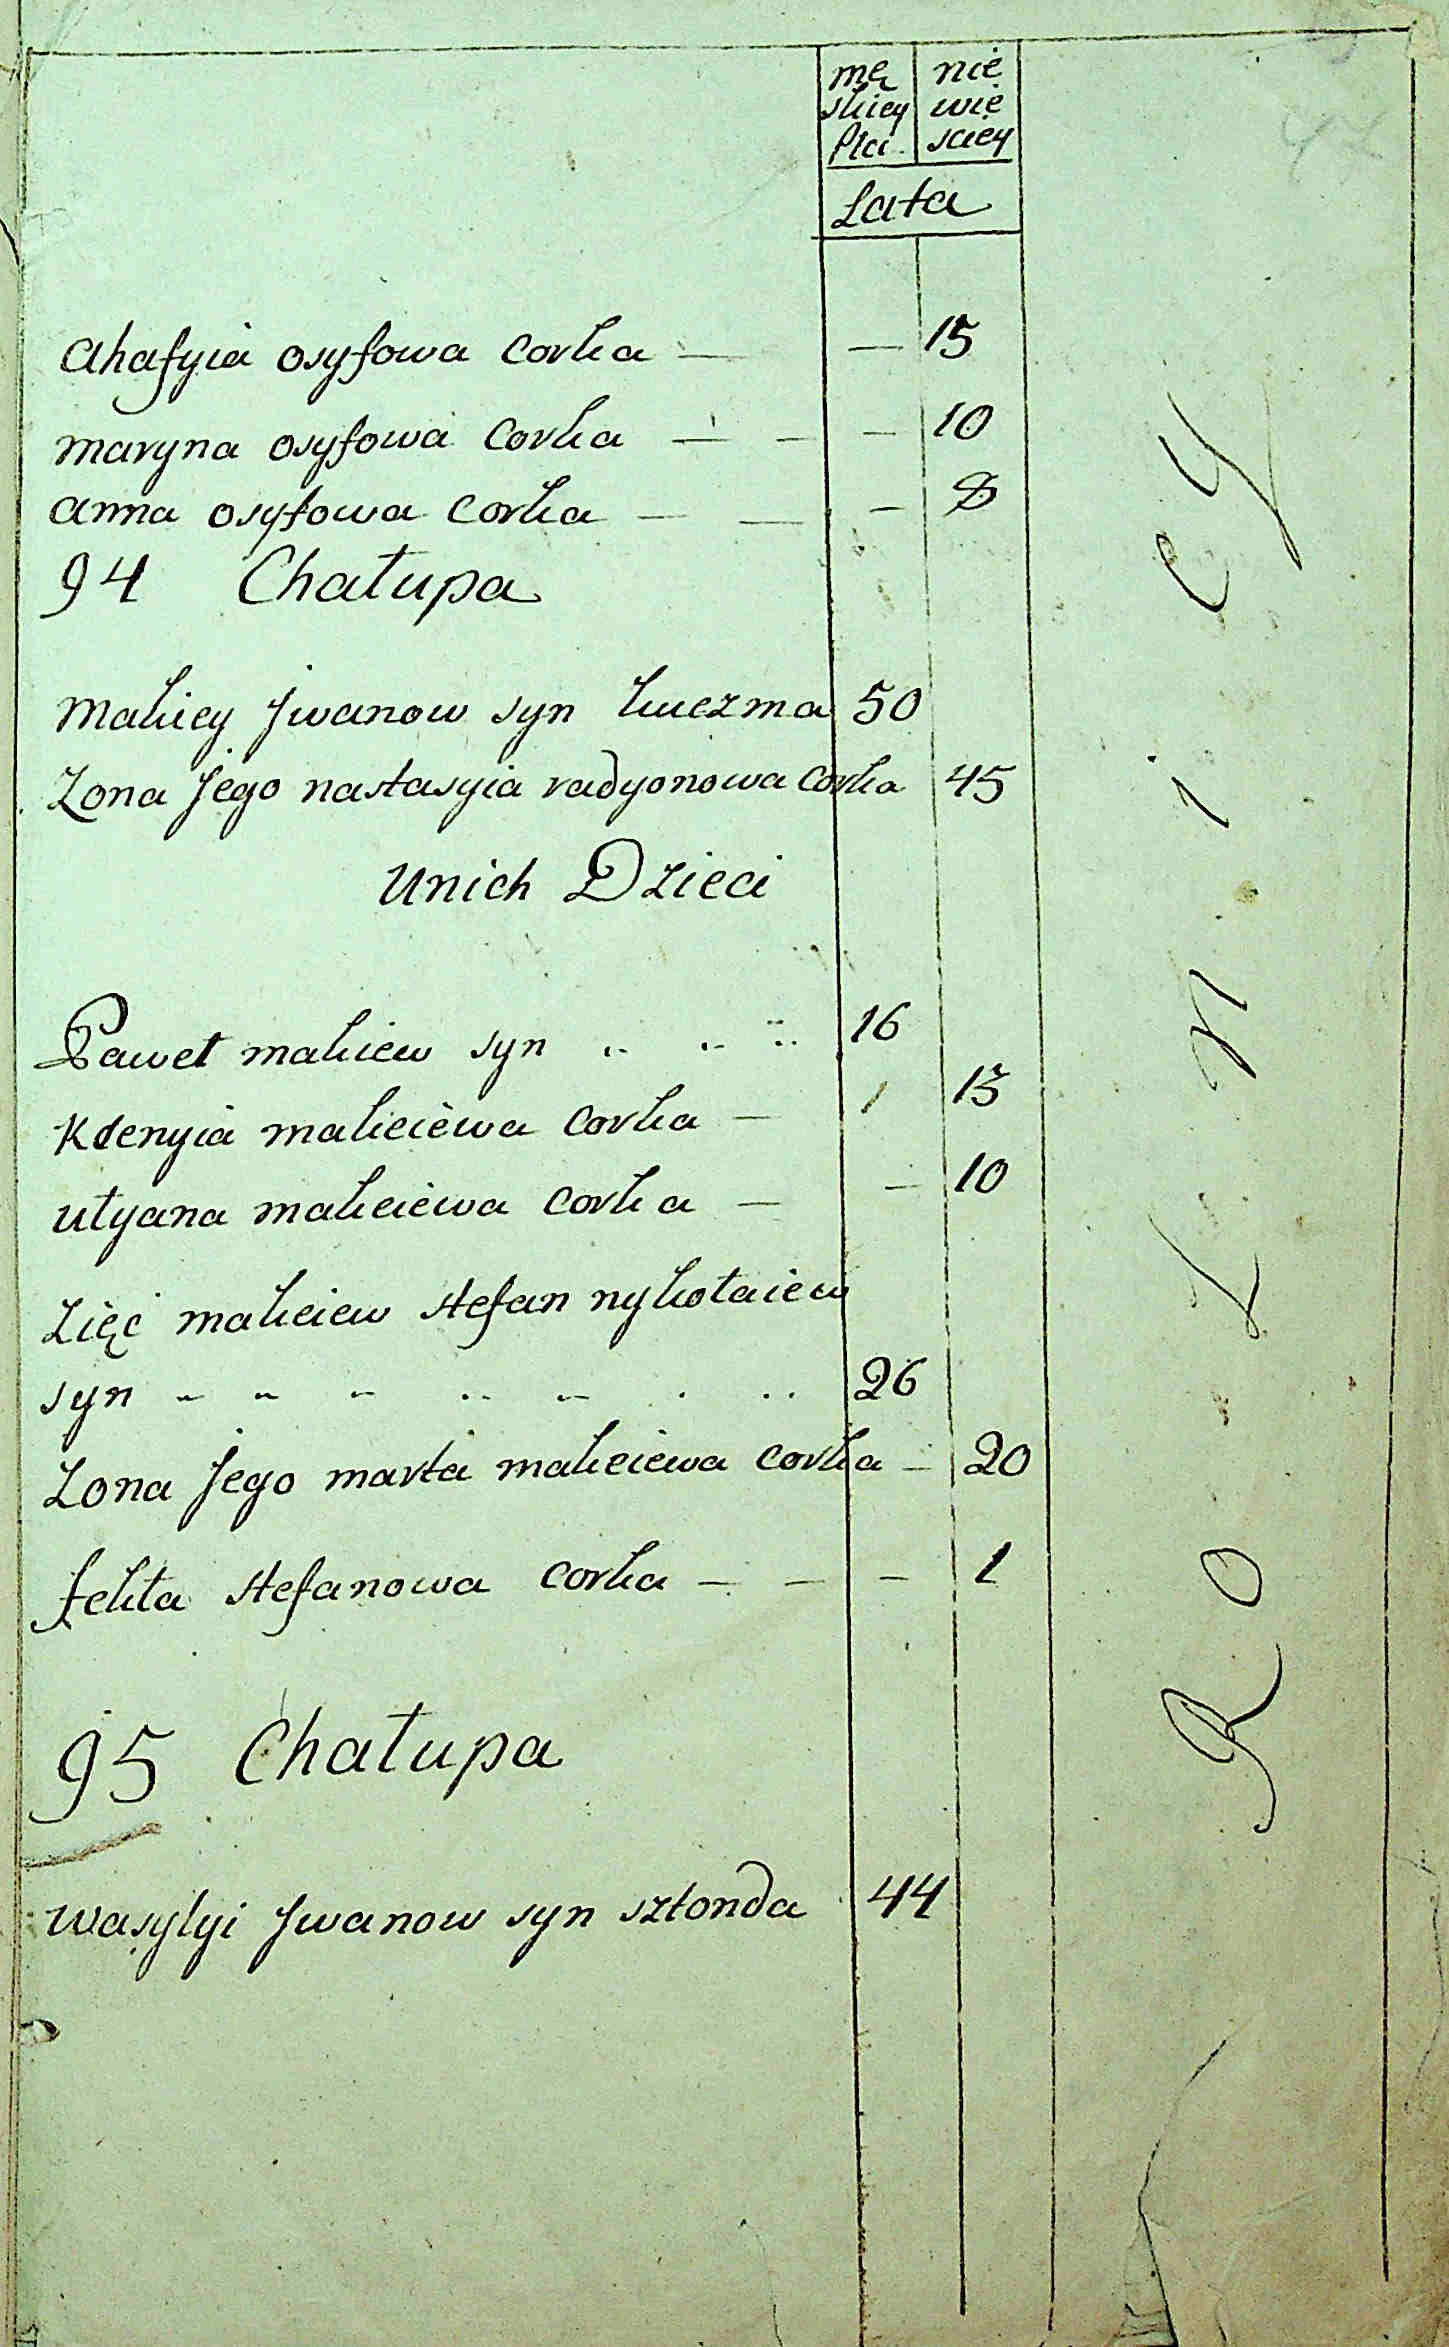 mę nie
skiey wie
Płci sciey
Lata
ahafyia osyfowa corka — — 15
maryna osyfowa corka — — — 10
anna osyfowa corka — — — 8
94 Chałupa
makiey Jwanow syn 50
Zona Jego nastasyia radyonowa corka 45
unich Dzieci
Paweł makiew syn 16
Ksenyia makieiewa corka — 13
utyana makieiewa corka — — 10
Zięć makieiew stefan nykołaiew
syn 26
Zona Jego marta makieiewa corka — 20
fekta stefanowa corka — — — 1
95 Chałupa
wasylyi Jwanow syn szłonda 44
ROLNICY